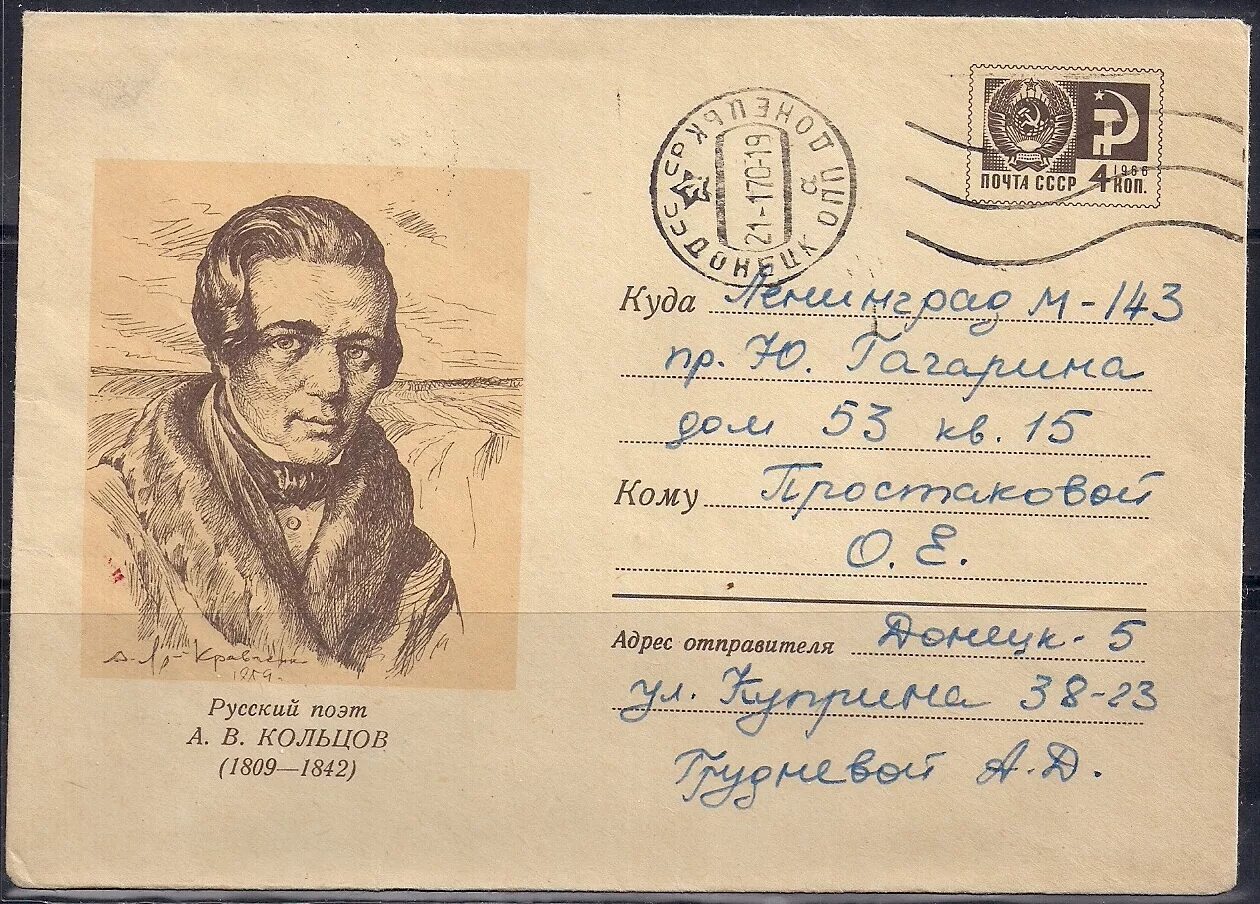 ДОНЕЦЬК УРСР
ДОНЕЦК ЦПО
21-1 70-19
а
ПОЧТА СССР
1966
4 КОП.
Куда Ленинград М-143
пр. Ю. Гагарина
дом 53 кв. 15
Кому Простаковой
О. Е.
Адрес отправителя Донецк-5
ул. Куприна 38-23
Грудневой А.Д.
Кравченко
1959.
Русский поэт
А. В. КОЛЬЦОВ
(1809—1842)